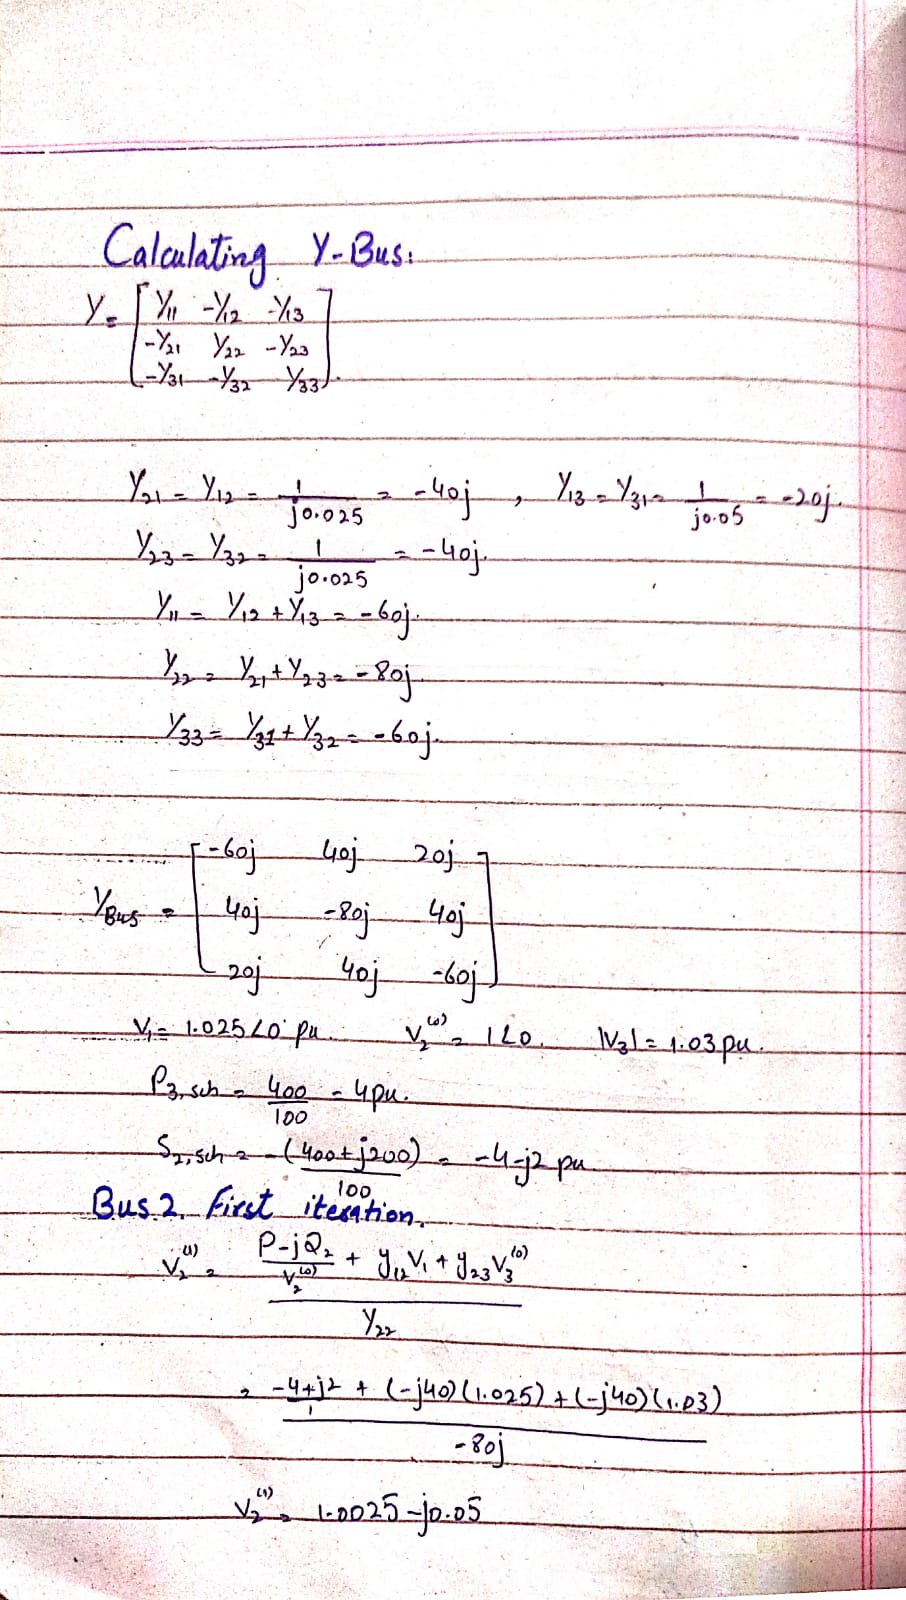 Calculating Y-Bus:
Y = [ Y11 -Y12 -Y13
-Y21 Y22 -Y23
-Y31 -Y32 Y33 ].
Y21 = Y12 = 1/j0.025 = -40j , Y13 = Y31 = 1/j0.05 = -20j.
Y23 = Y32 = 1/j0.025 = -40j.
Y11 = Y12 + Y13 = -60j.
Y22 = Y21 + Y23 = -80j
Y33 = Y31 + Y32 = -60j.
YBus = [ -60j 40j 20j
40j -80j 40j
20j 40j -60j ]
V1 = 1.025∠0° pu. V2^(0) = 1∠0. |V3| = 1.03 pu.
P3,sch = 400/100 = 4pu.
S2,sch = -(400+j200)/100 = -4-j2 pu
Bus 2. First iteration.
V2^(1) = ((P-jQ2)/V2^(0) + y12V1 + y23V3^(0))/Y22
= ((-4+j2)/1 + (-j40)(1.025) + (-j40)(1.03))/-80j
V2^(1) = 1.0025-j0.05